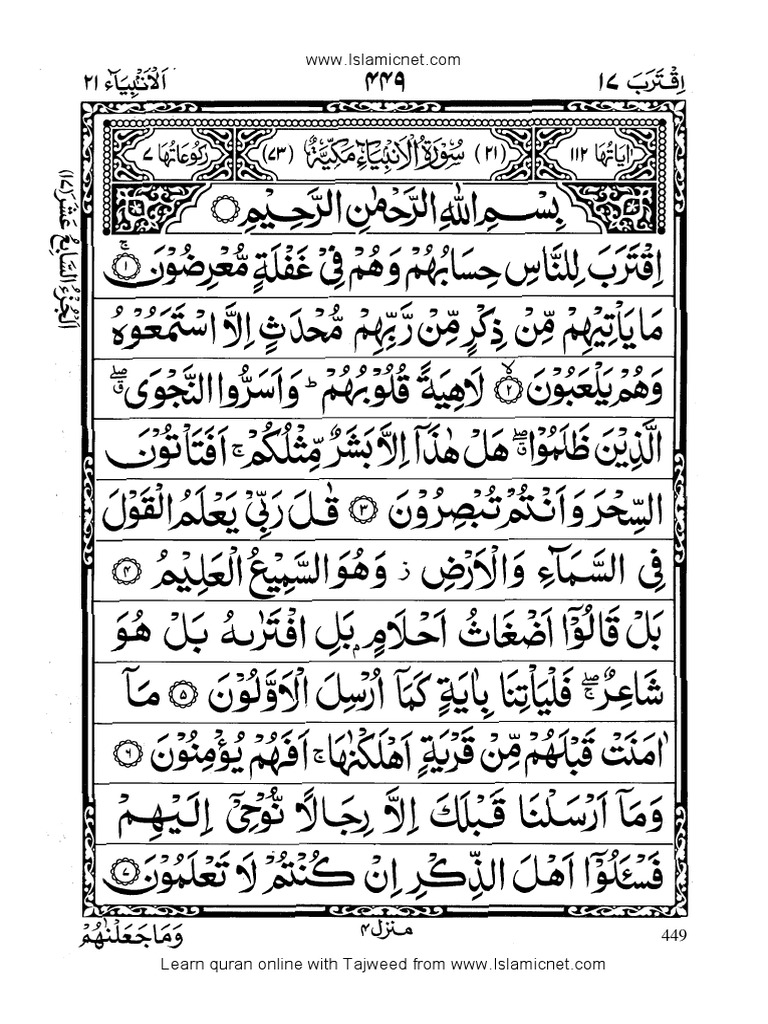 www.Islamicnet.com
اِقْتَرَبَ ١٧ ٤٤٩ اَلْاَنْۢبِيَآء ٢١
اٰيَاتُهَا ١١٢ (٢١) سُوْرَةُ الْاَنْۢبِيَآءِ مَكِّيَّةٌ (٧٣) رُكُوْعَاتُهَا ٧
بِسْمِ اللّٰهِ الرَّحْمٰنِ الرَّحِيْمِ
اِقْتَرَبَ لِلنَّاسِ حِسَابُهُمْ وَهُمْ فِيْ غَفْلَةٍ مُّعْرِضُوْنَ ۚ ١
مَا يَاْتِيْهِمْ مِّنْ ذِكْرٍ مِّنْ رَّبِّهِمْ مُّحْدَثٍ اِلَّا اسْتَمَعُوْهُ
وَهُمْ يَلْعَبُوْنَ ۙ ٢ لَاهِيَةً قُلُوْبُهُمْ ؕ وَاَسَرُّوا النَّجْوَى ۖق
الَّذِيْنَ ظَلَمُوْا ۖق هَلْ هٰذَاۤ اِلَّا بَشَرٌ مِّثْلُكُمْ ۚ اَفَتَاْتُوْنَ
السِّحْرَ وَاَنْتُمْ تُبْصِرُوْنَ ٣ قٰلَ رَبِّيْ يَعْلَمُ الْقَوْلَ
فِي السَّمَآءِ وَالْاَرْضِ ز وَهُوَ السَّمِيْعُ الْعَلِيْمُ ٤
بَلْ قَالُوْۤا اَضْغَاثُ اَحْلَامٍۭ بَلِ افْتَرٰىهُ بَلْ هُوَ
شَاعِرٌ ۖۚ فَلْيَاْتِنَا بِاٰيَةٍ كَمَاۤ اُرْسِلَ الْاَوَّلُوْنَ ٥ مَاۤ
اٰمَنَتْ قَبْلَهُمْ مِّنْ قَرْيَةٍ اَهْلَكْنٰهَا ۚ اَفَهُمْ يُؤْمِنُوْنَ ٦
وَمَاۤ اَرْسَلْنَا قَبْلَكَ اِلَّا رِجَالًا نُّوْحِيْۤ اِلَيْهِمْ
فَسْـَٔلُوْۤا اَهْلَ الذِّكْرِ اِنْ كُنْتُمْ لَا تَعْلَمُوْنَ ٧
اَلْجُزْءُ السَّابِعُ عَشَرَ (١٧)
وَمَا جَعَلْنٰهُمْ منزل ٤ 449
Learn quran online with Tajweed from www.Islamicnet.com